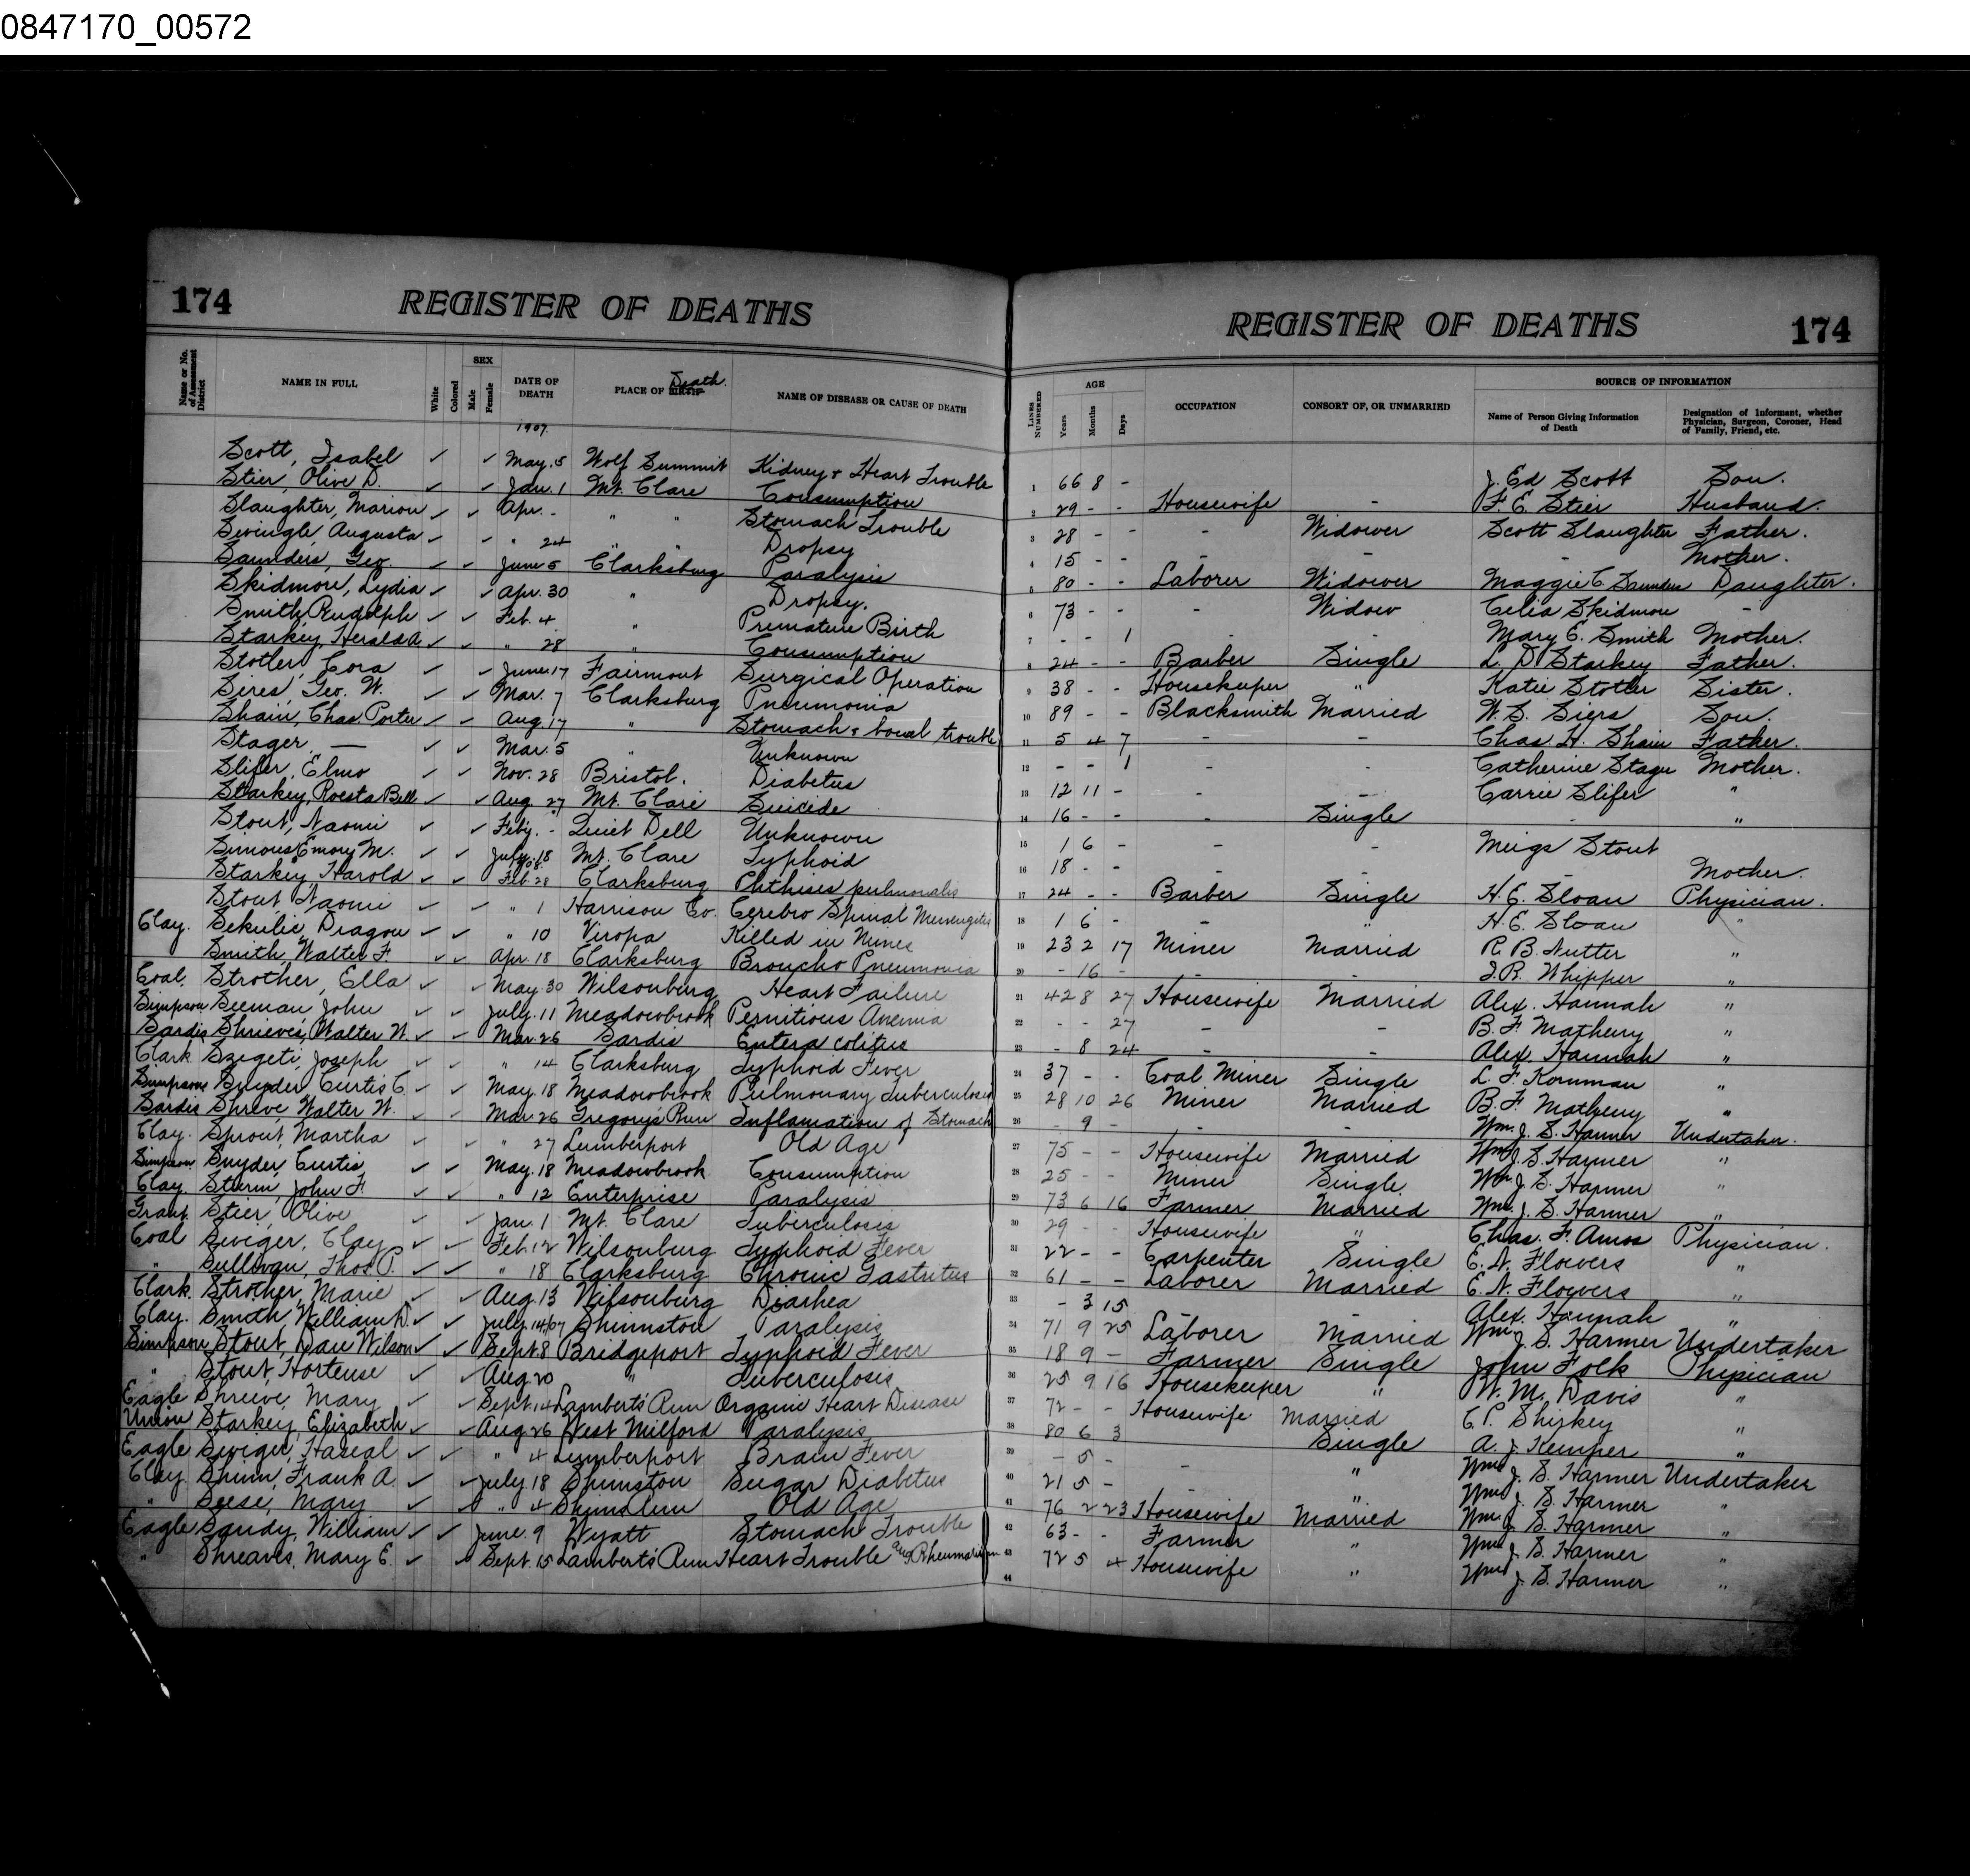 0847170_00572
174 REGISTER OF DEATHS
REGISTER OF DEATHS 174
Name or No. of Assessment District
NAME IN FULL
White
Colored
SEX
Male
Female
DATE OF DEATH
PLACE OF BIRTH Death.
NAME OF DISEASE OR CAUSE OF DEATH
LINES NUMBERED
AGE
Years
Months
Days
OCCUPATION
CONSORT OF, OR UNMARRIED
SOURCE OF INFORMATION
Name of Person Giving Information of Death
Designation of Informant, whether Physician, Surgeon, Coroner, Head of Family, Friend, etc.
1907.
Scott, Isabel ✓ ✓ May. 5 Wolf Summit Kidney & Heart Trouble 1 66 8 - J. Ed Scott Son.
Stier, Olive D. ✓ ✓ Jan. 1 Mt. Clare Consumption 2 29 - - Housewife - F. E. Stier Husband.
Slaughter, Marion ✓ ✓ Apr. - " " Stomach Trouble 3 28 - - - Widower Scott Slaughter Father.
Swingle, Augusta ✓ ✓ " 24 " " Dropsy 4 15 - - - - - Mother.
Saunders, Geo. ✓ ✓ June 5 Clarksburg Paralysis 5 80 - - Laborer Widower Maggie C. Saunders Daughter.
Skidmore, Lydia ✓ ✓ Apr. 30 " Dropsy. 6 73 - - - Widow Celia Skidmore -
Smith, Rudolph ✓ ✓ Feb. 4 " Premature Birth 7 - - 1 - - Mary E. Smith Mother.
Starkey, Herald A ✓ ✓ " 28 " Consumption 8 24 - - Barber Single L. D Starkey Father.
Stotler, Cora ✓ ✓ June 17 Fairmont Surgical Operation 9 38 - - Housekeeper " Katie Stotler Sister.
Sires, Geo. W. ✓ ✓ Mar. 7 Clarksburg Pneumonia 10 89 - - Blacksmith Married W. S. Siers Son.
Shain, Chas Porter ✓ ✓ Aug. 17 " Stomach & bowel trouble 11 5 4 7 - - Chas. H. Shain Father.
Stager, — ✓ ✓ Mar. 5 " Unknown 12 - - 1 - - Catherine Stager Mother.
Slifer, Elmo ✓ ✓ Nov. 28 Bristol. Diabetus 13 12 11 - - - Carrie Slifer "
Starkey, Roesta Bell ✓ ✓ Aug. 27 Mt. Clare Suicide 14 16 - - Single - "
Stout, Naomi ✓ ✓ Feby. - Quiet Dell Unknown 15 1 6 - - - Meigs Stout
Simous Emory M. ✓ ✓ July. 18 Mt. Clare Typhoid 16 18 - - - - - Mother.
Starkey Harold ✓ ✓ Feb. 28 Clarksburg Phthisis pulmonalis 17 24 - - Barber Single H. E. Sloan Physician.
Stout, Naomi ✓ ✓ " 1 Harrison Co. Cerebro Spinal Menengitis 18 1 6 - - " H. E. Sloan "
Clay. Sekulic, Dragon ✓ ✓ " 10 Viropa Killed in Mines 19 23 2 17 Miner Married R. B. Nutter "
Smith, Walter F. ✓ ✓ Apr. 18 Clarksburg Broncho Pneumonia 20 - 16 - - - I. R. Whipper "
Coal. Strother, Ella ✓ ✓ May. 30 Wilsonburg Heart Failure 21 42 8 27 Housewife Married Alex. Hannah "
Simpson Seeman, John ✓ ✓ July. 11 Meadowbrook Pernitious Anemia 22 - - 27 - - B. F. Matheny "
Sardis Shrieves, Walter W. ✓ ✓ Mar. 26 Sardis Entera colitus 23 - 8 24 - - Alex. Hannah "
Clark Szigeti, Joseph ✓ ✓ " 14 Clarksburg Typhoid Fever 24 37 - - Coal Miner Single L. F. Kornman "
Simpson Snyder Curtis C. ✓ ✓ May. 18 Meadowbrook Pulmonary Tuberculosis 25 28 10 26 Miner Married B. F. Matheny "
Sardis Shreve, Walter W. ✓ ✓ Mar. 26 Gregory's Run Inflamation of Stomach 26 - 9 - - - Wm. J. S. Harmer Undertaker.
Clay. Sprout, Martha ✓ ✓ " 27 Lumberport Old Age 27 75 - - Housewife Married Wm. J. S. Harmer "
Simpson Snyder Curtis ✓ ✓ May. 18 Meadowbrook Consumption 28 25 - - Miner Single. Wm. J. S. Harmer "
Clay. Sturm, John F. ✓ ✓ " 12 Enterprise Paralysis 29 73 6 16 Farmer Married Wm. J. S. Harmer "
Grant. Stier, Olive ✓ ✓ Jan. 1 Mt. Clare Tuberculosis 30 29 - - Housewife " Chas. F. Amos Physician.
Coal Swiger, Clay ✓ ✓ Feb. 12 Wilsonburg Typhoid Fever 31 22 - - Carpenter Single E. N. Flowers "
" Sullivan, Thos P. ✓ ✓ " 18 Clarksburg Chronic Gastritus 32 61 - - Laborer Married E. N. Flowers "
Clark. Strother, Marie ✓ ✓ Aug. 13 Wilsonburg Diarhea 33 - 3 15 Alex. Hannah "
Clay. Smith, William D. ✓ ✓ July. 14/07 Shinnston Paralysis 34 71 9 25 Laborer Married Wm. J. S. Harmer Undertaker
Simpson Stout, Dan Wilson ✓ ✓ Sept. 8 Bridgeport Typhoid Fever 35 18 9 - Farmer Single John Folk Phipician
" Stout, Hortense ✓ ✓ Aug. 20 " Tuberculosis 36 25 9 16 Housekeeper " W. M. Davis "
Eagle Shreve, Mary ✓ ✓ Sept. 14 Lambert's Run Organic Heart Disease 37 72 - - Housewife Married C. P. Shirkey "
Union Starkey, Elizabeth ✓ ✓ Aug. 26 West Milford Paralysis 38 80 6 3 Single A. J. Kemper "
Eagle Swiger, Haseal ✓ ✓ " 4 Lumberport Brain Fever 39 - 5 - - " Wm. J. S. Harmer Undertaker
Clay. Shinn, Frank A. ✓ ✓ July. 18 Shinnston Sugar Diabetus 40 21 5 - - " Wm. J. S. Harmer "
" Seese, Mary ✓ ✓ " 4 Old Age 41 76 2 23 Housewife Married Wm. J. S. Harmer "
Eagle Sandy, William ✓ ✓ June. 9 Wyatt Stomach Trouble 42 63 - - Farmer " Wm. J. S. Harmer "
" Shreaves, Mary E. ✓ ✓ Sept. 15 Lambert's Run Heart Trouble and Rheumatism 43 72 5 4 Housewife " Wm. J. S. Harmer "
44